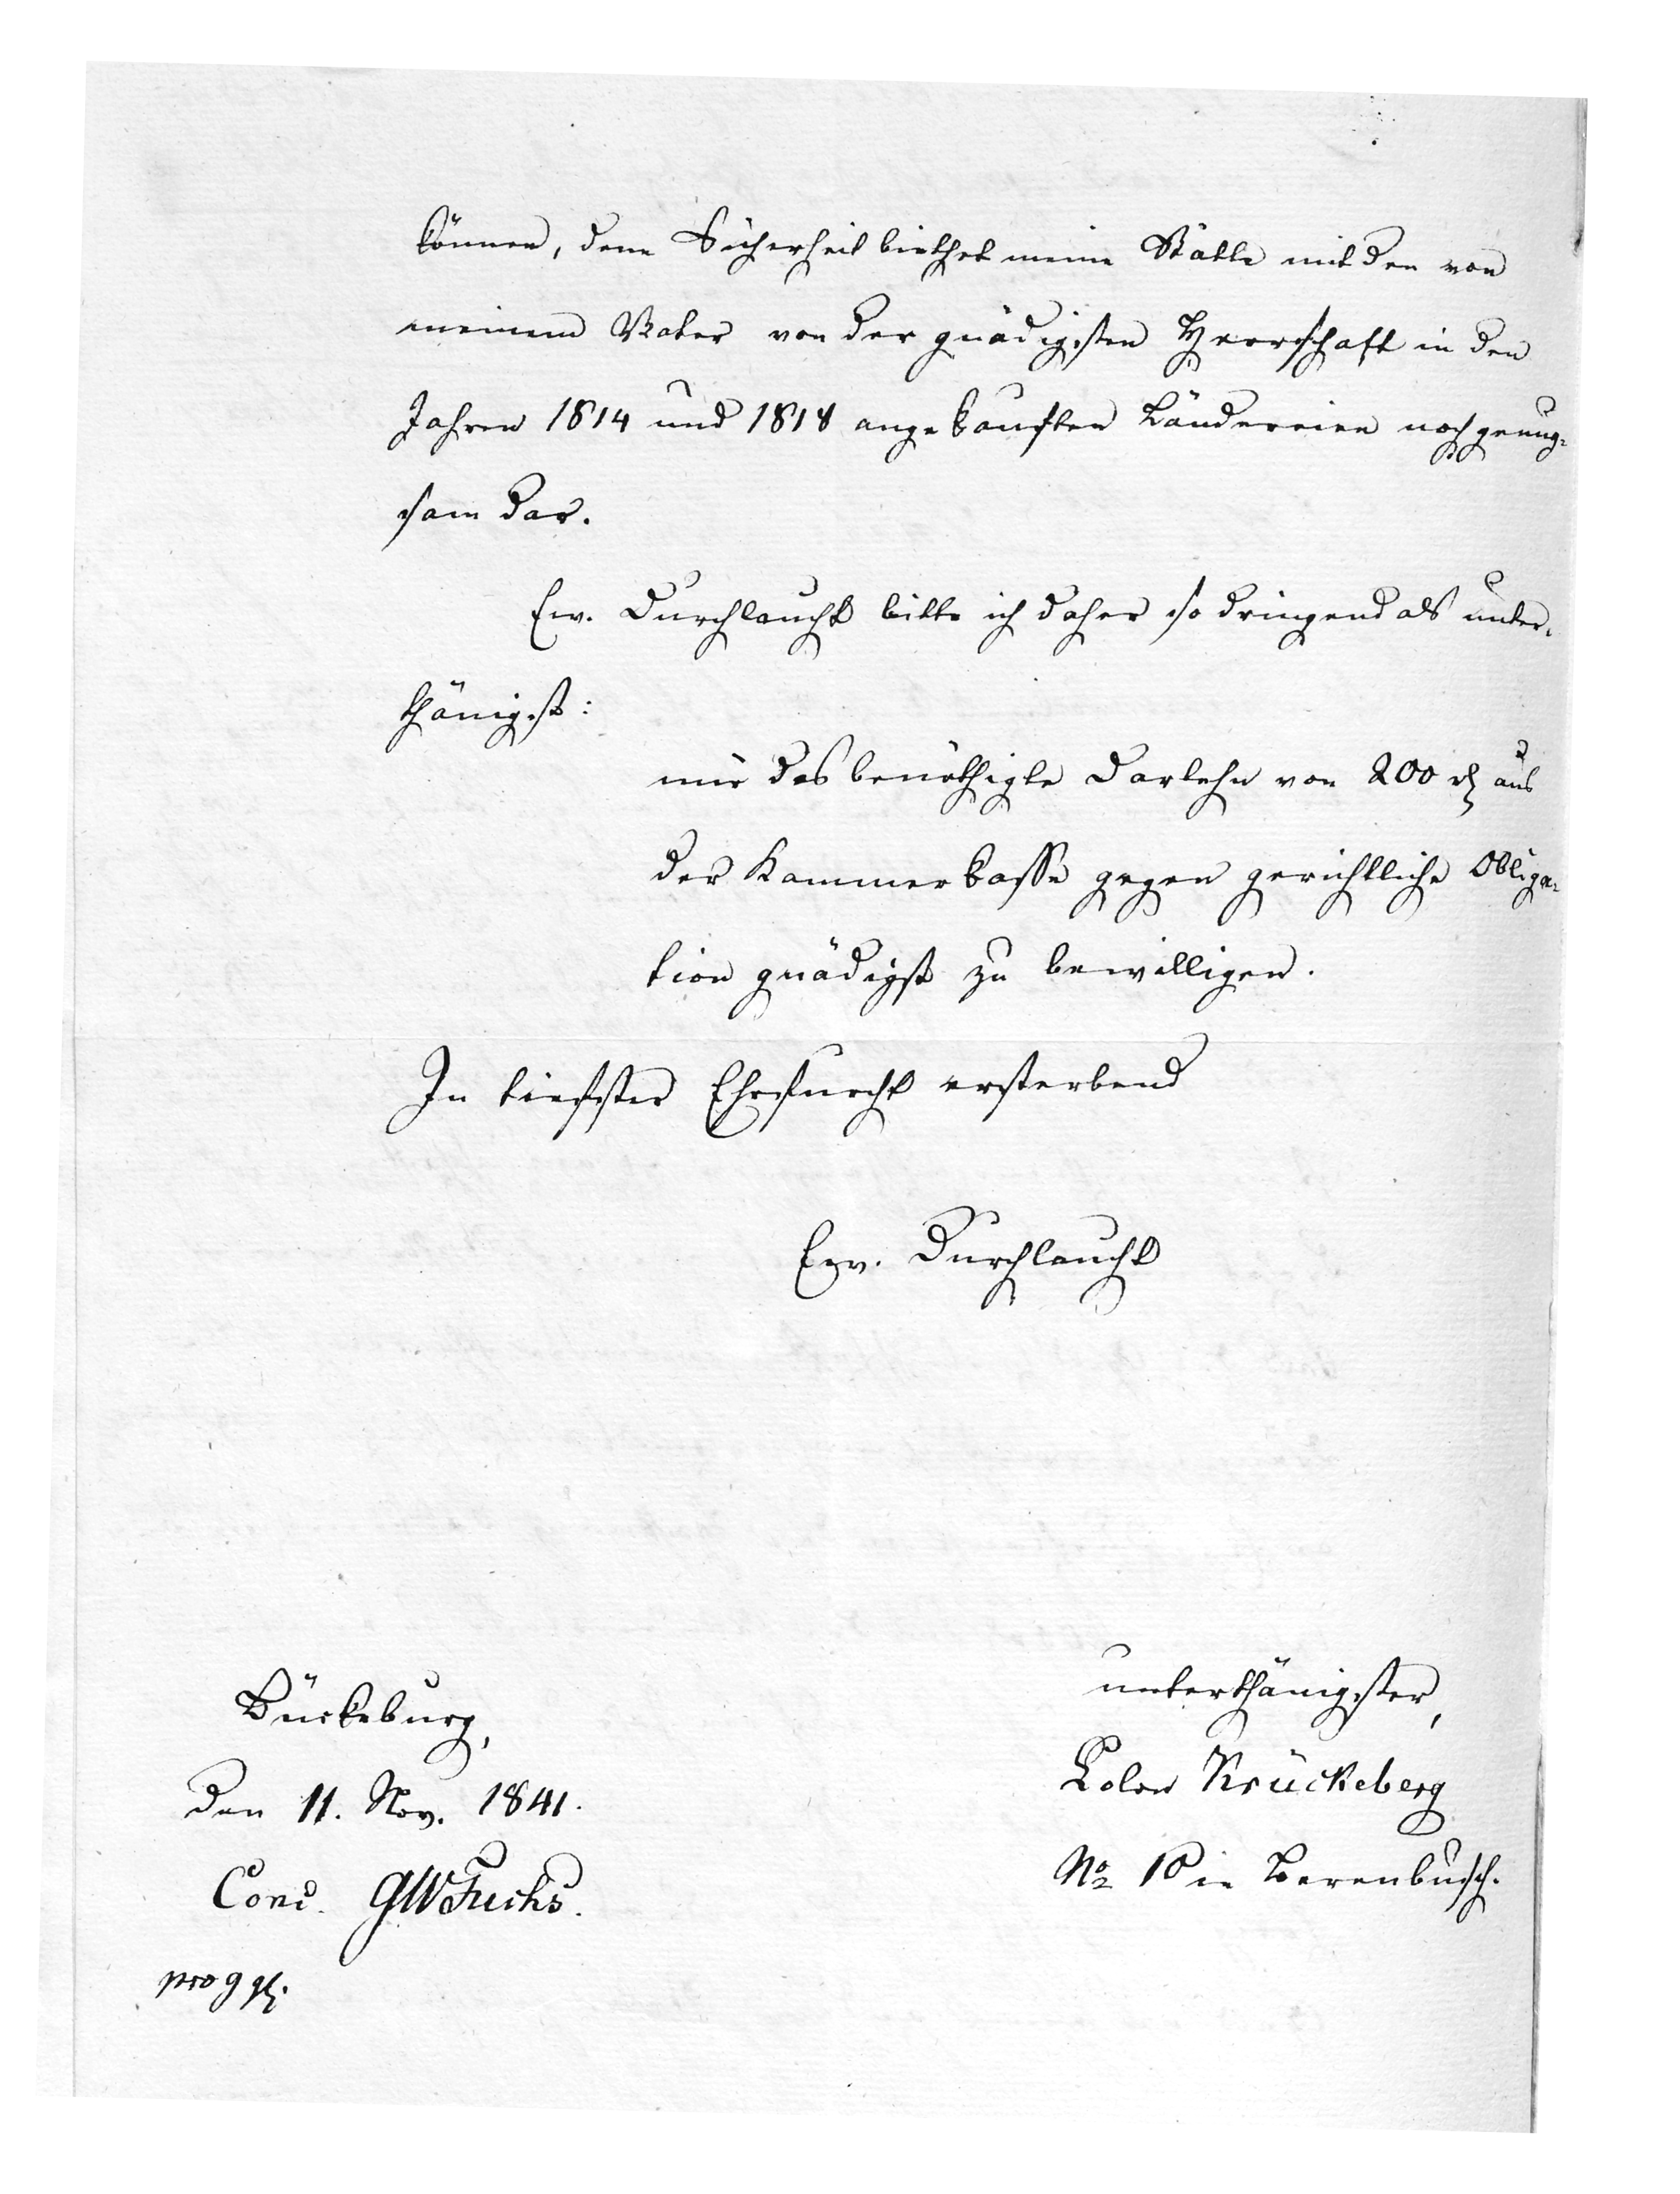 können, denn Sicherheit biethet meine Stätte mit den von
meinem Vater von der gnädigsten Herrschaft in den
Jahren 1814 und 1818 angekauften Ländereien noch genug-
sam dar.
Ew. Durchlaucht bitte ich daher so dringend als unter-
thänigst:
mir das benöthigte Darlehn von 200 rth aus
der Kammerkasse gegen gerichtliche Obliga-
tion gnädigst zu bewilligen.
In tiefster Ehrfurcht ersterbend
Ew. Durchlaucht
unterthänigster,
Colon Krückeberg
No 10 in Berenbusch.
Bückeburg,
den 11. Nov. 1841.
Conc. GW Fuchs.
pro 9 ggl.